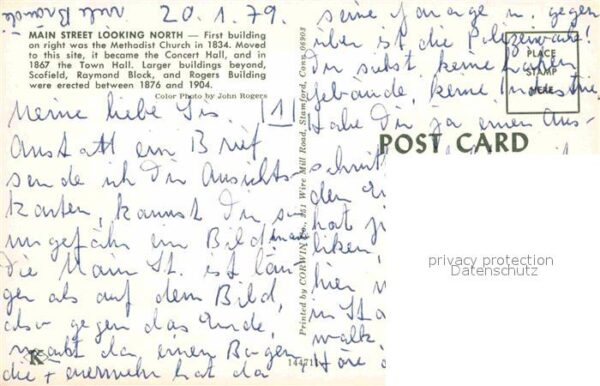 20.1.79.
MAIN STREET LOOKING NORTH — First building
on right was the Methodist Church in 1834. Moved
to this site, it became the Concert Hall, and in
1867 the Town Hall. Larger buildings beyond,
Scofield, Raymond Block, and Rogers Building
were erected between 1876 and 1904.
Color Photo by John Rogers
Meine liebe Sis. [1]
Anstatt ein Brief
sende ich Dir Ansichts-
karten, kannst Dir so
ungefähr ein Bild machen
die Main St. ist län-
ger als auf dem Bild,
also gegen das Ende,
macht da einen Bogen
die Feuerwehr hat da
seine Garage u. gegen
über ist die Polizeiwache!
Du siehst keine hohen
Gebäude, keine Industrie,
Habe Dir ja einen Aus-
schnitt
den
hat
liken,
hier
in St
walk
Höre
PLACE
STAMP
HERE
POST CARD
Printed by CORWIN Co., 251 Wire Mill Road, Stamford, Conn 06903
K
14471
privacy protection
Datenschutz